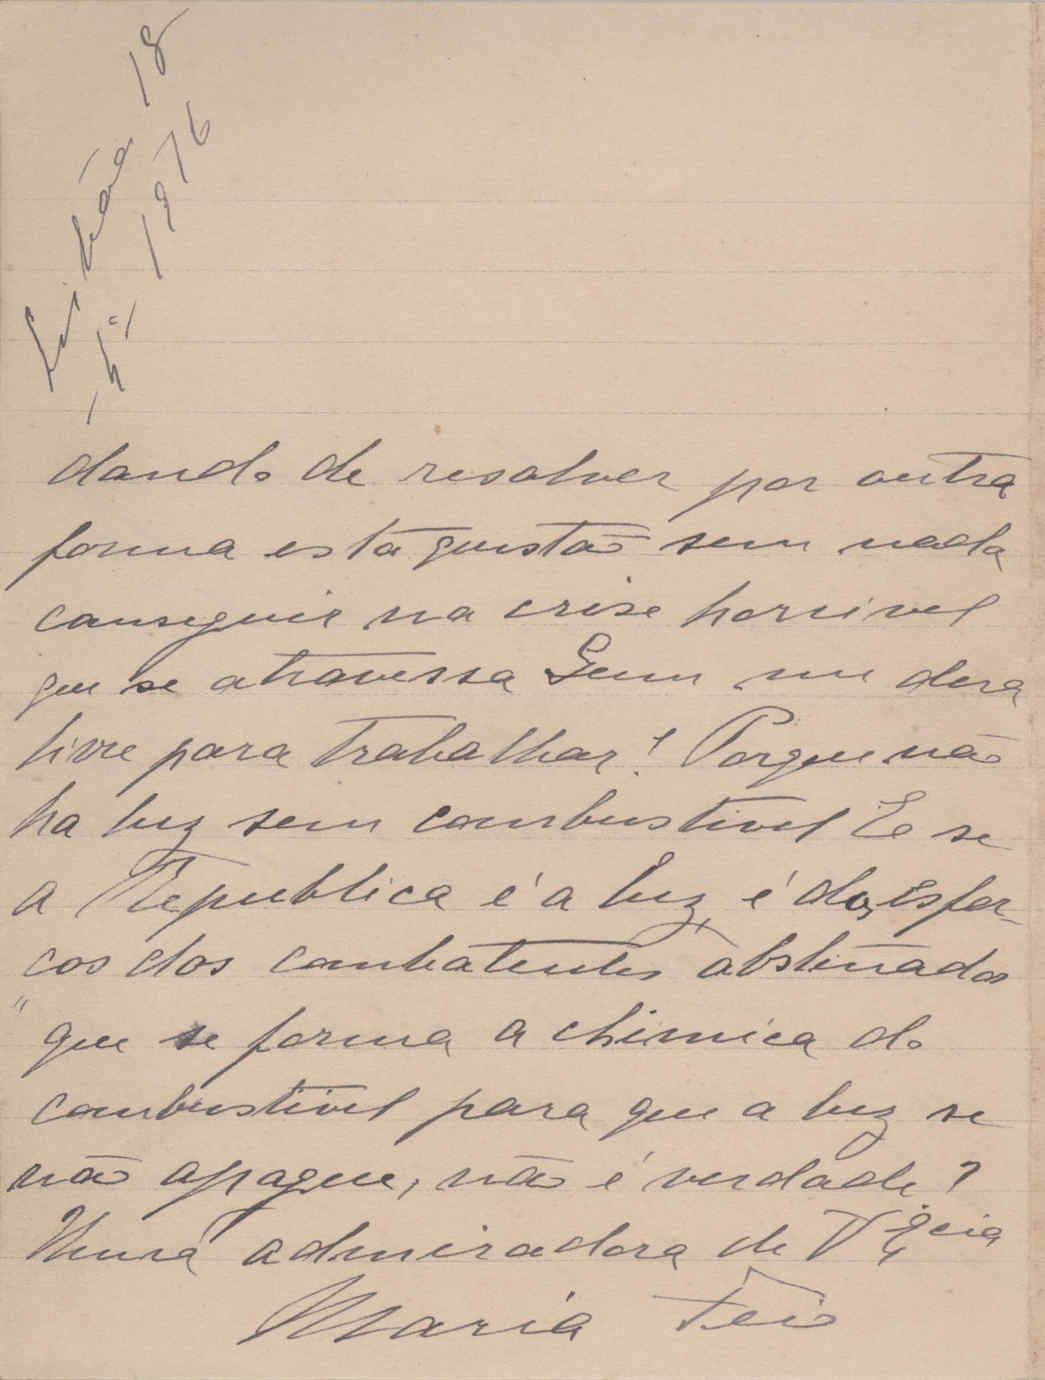 Lisbôa 18
-4º/ 1916
dando de resolver por outra
forma esta questão sem nada
conseguir na crise horrivel
que se atravessa Quem me dera
livre para trabalhar! Porque não
ha luz sem combustivel E se
a Republica é a luz, é dos esfor-
ços dos combatentes obstinados
" que se forma a chimica do
combustivel para que a luz se
não apague, não é verdade?
Uma admiradora de V Ex.cia
Maria Feio